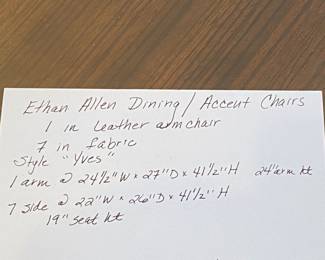 Ethan Allen Dining / Accent Chairs
1 in Leather armchair
7 in fabric
Style "Yves"
1 arm @ 24 1/2" W x 27" D x 41 1/2" H 24" arm ht
7 side @ 22" W x 26" D x 41 1/2" H
19" seat ht